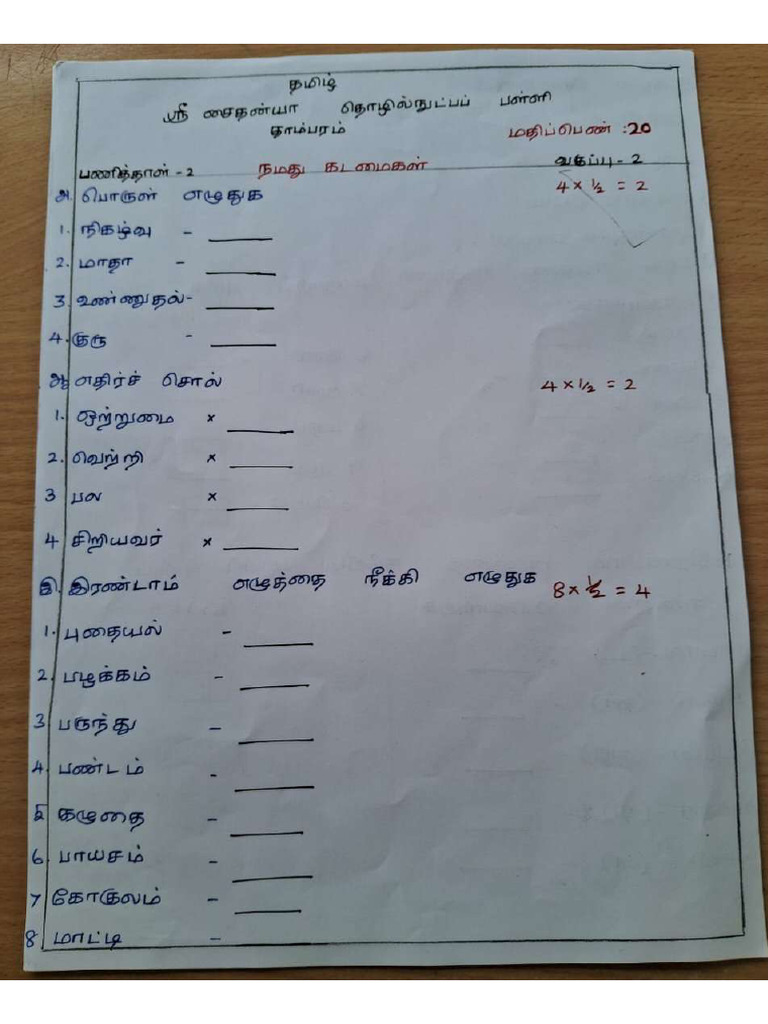 தமிழ்
ஸ்ரீ சைதன்யா தொழில்நுட்பப் பள்ளி
தாம்பரம் மதிப்பெண் : 20
பணித்தாள் - 2 நமது கடமைகள் வகுப்பு - 2
அ. பொருள் எழுதுக 4 × 1/2 = 2
1. நிகழ்வு - ____
2. மாதா - ____
3. உண்ணுதல் - ____
4. குரு - ____
ஆ. எதிர்ச் சொல் 4 × 1/2 = 2
1. ஒற்றுமை × ____
2. வெற்றி × ____
3 பல × ____
4 சிறியவர் × ____
இ. இரண்டாம் எழுத்தை நீக்கி எழுதுக 8 × 1/2 = 4
1. புதையல் - ____
2. பழக்கம் - ____
3 பருந்து - ____
4. பண்டம் - ____
5 கழுதை - ____
6. பாயசம் - ____
7 கோகுலம் - ____
8 மாட்டி -